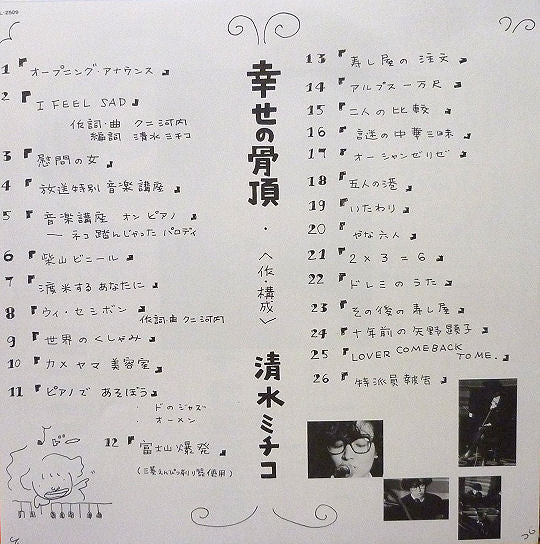 L-2509
1 『オープニング・アナウンス』
2 『I FEEL SAD』
作詞・曲 クニ河内
編詞 清水ミチコ
3 『慰問の女』
4 『放送特別音楽講座』
5 『音楽講座 オンピアノ』
— ネコ踏んじゃった パロディ
6 『柴山ビニール』
7 『渡米するあなたに』
8 『ウィ・セミボン』
作詞・曲 クニ河内
9 『世界のくしゃみ』
10 『カメヤマ美容室』
11 『ピアノで あそぼう』
・ドのジャズ
・オーメン
12 『富士山爆発』
(三菱えんぴつ削り器使用)
幸せの骨頂・〈作・構成〉清水ミチコ
13 『寿し屋の注文』
14 『アルプス一万尺』
15 『二人の比較』
16 『謎の中華三昧』
17 『オーシャンゼリゼ』
18 『五人の港』
19 『いたわり』
20 『やな六人』
21 『2×3=6』
22 『ドレミのうた』
23 『その後の寿し屋』
24 『十年前の矢野顕子』
25 『LOVER COMEBACK
TO ME.』
26 『特派員報告』